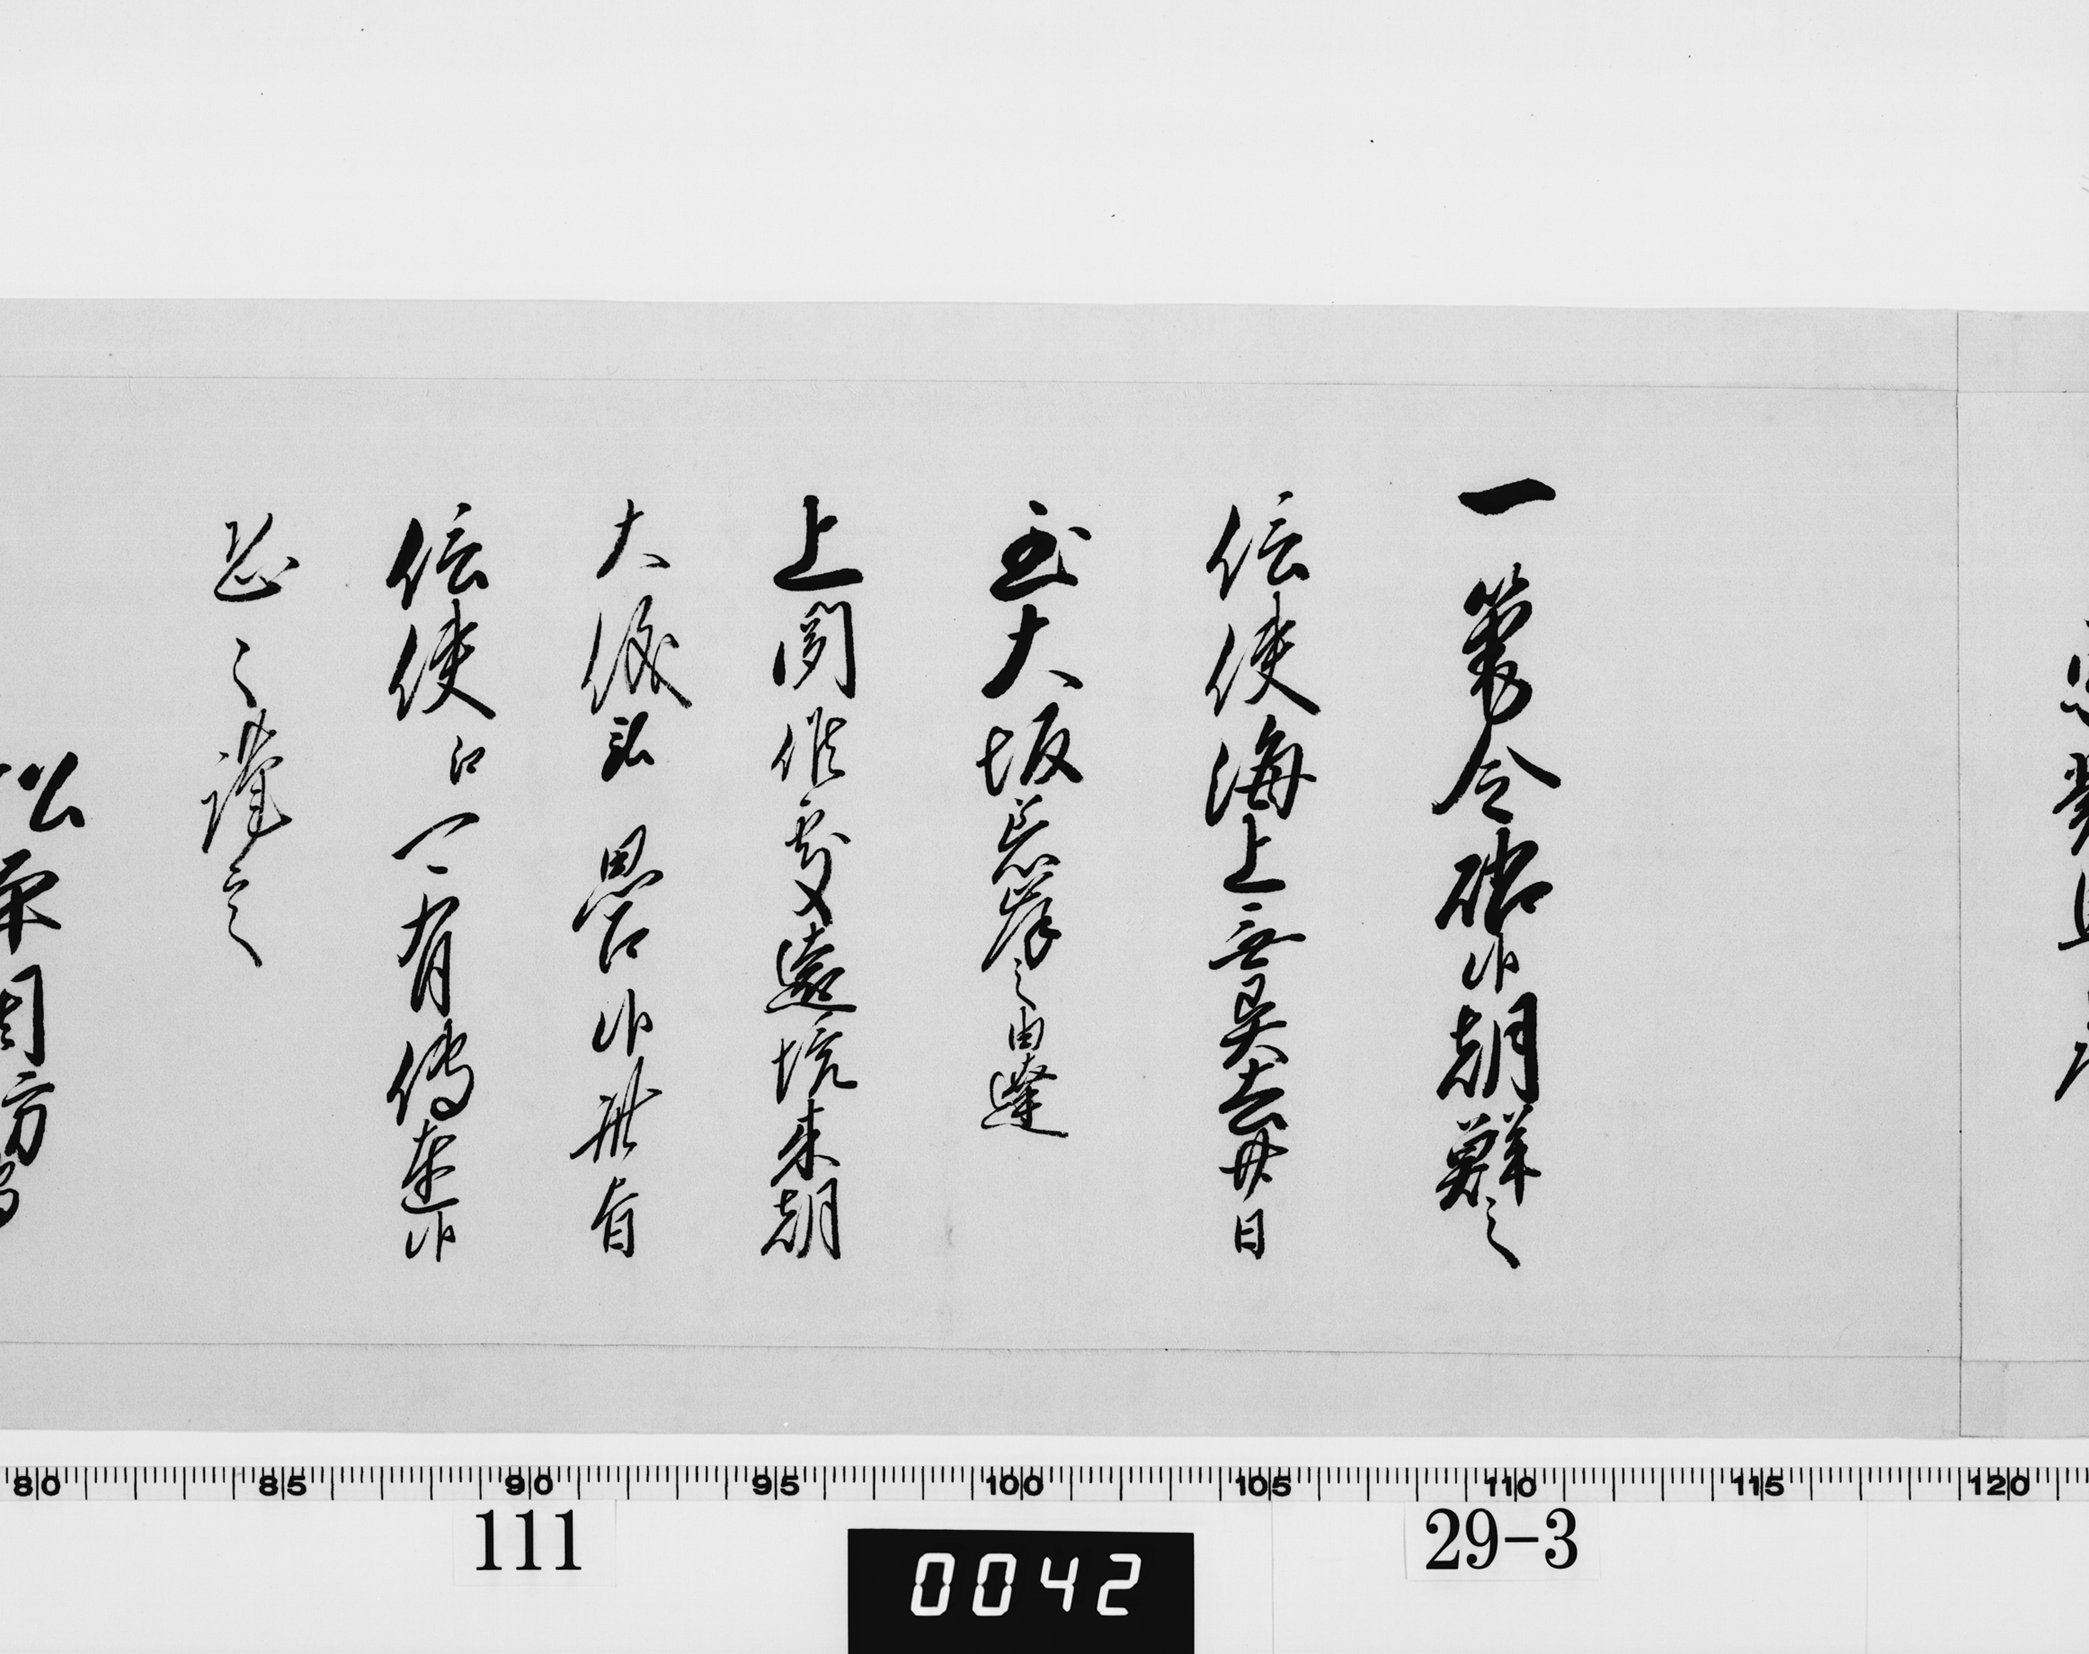 一筆令啓候朝鮮之
信使海上無異去廿日
至大坂着岸之由達
上聞候處遠境来朝
大儀被思召候此旨
信使江可有傳達候
恐々謹言
松平周防守
80 85 90 95 100 105 110 115 120
111
0042
29-3